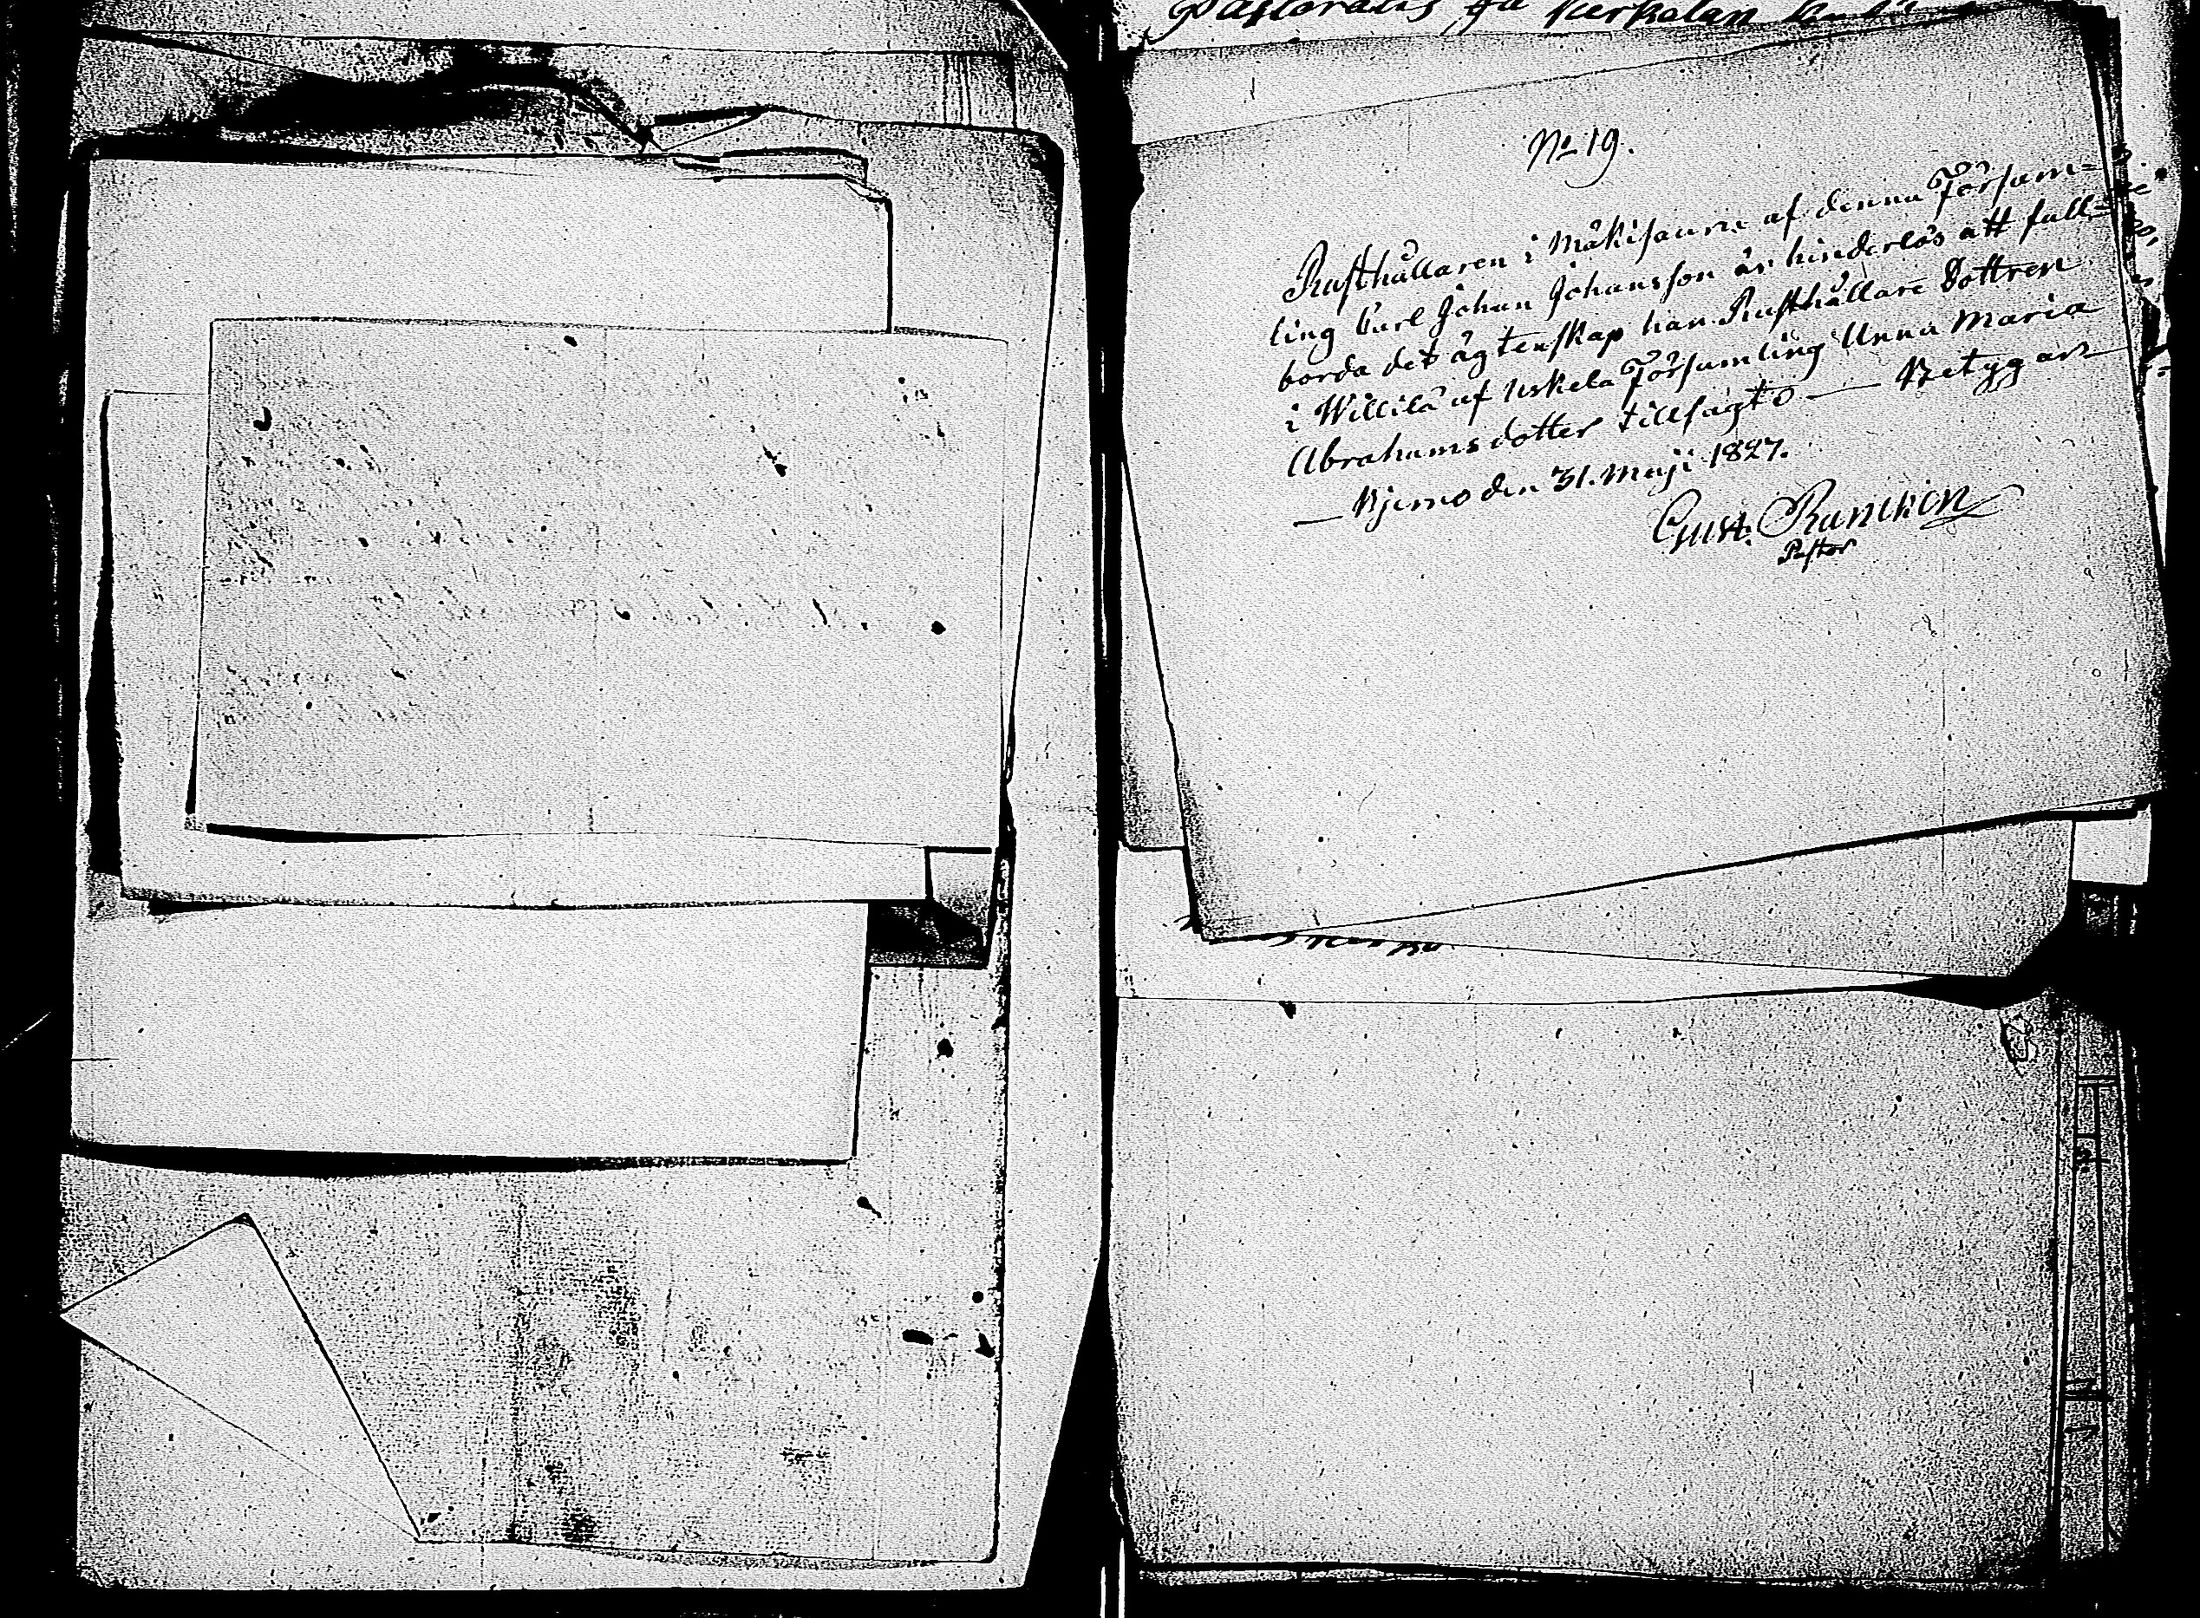 Pastoralis
No 19.
Rusthållaren i Mäkisauru af denna Försam-
ling Carl Johan Johansson är hinderlös att full-
borda det ägtenskap han Rusthållare Dottren
i Willilä af Uskela Församling Anna Maria
Abrahamsdotter tillsagt o — Betygar
— Bjerno den 31. Maji 1827.
Gust. Rancken
Pastor